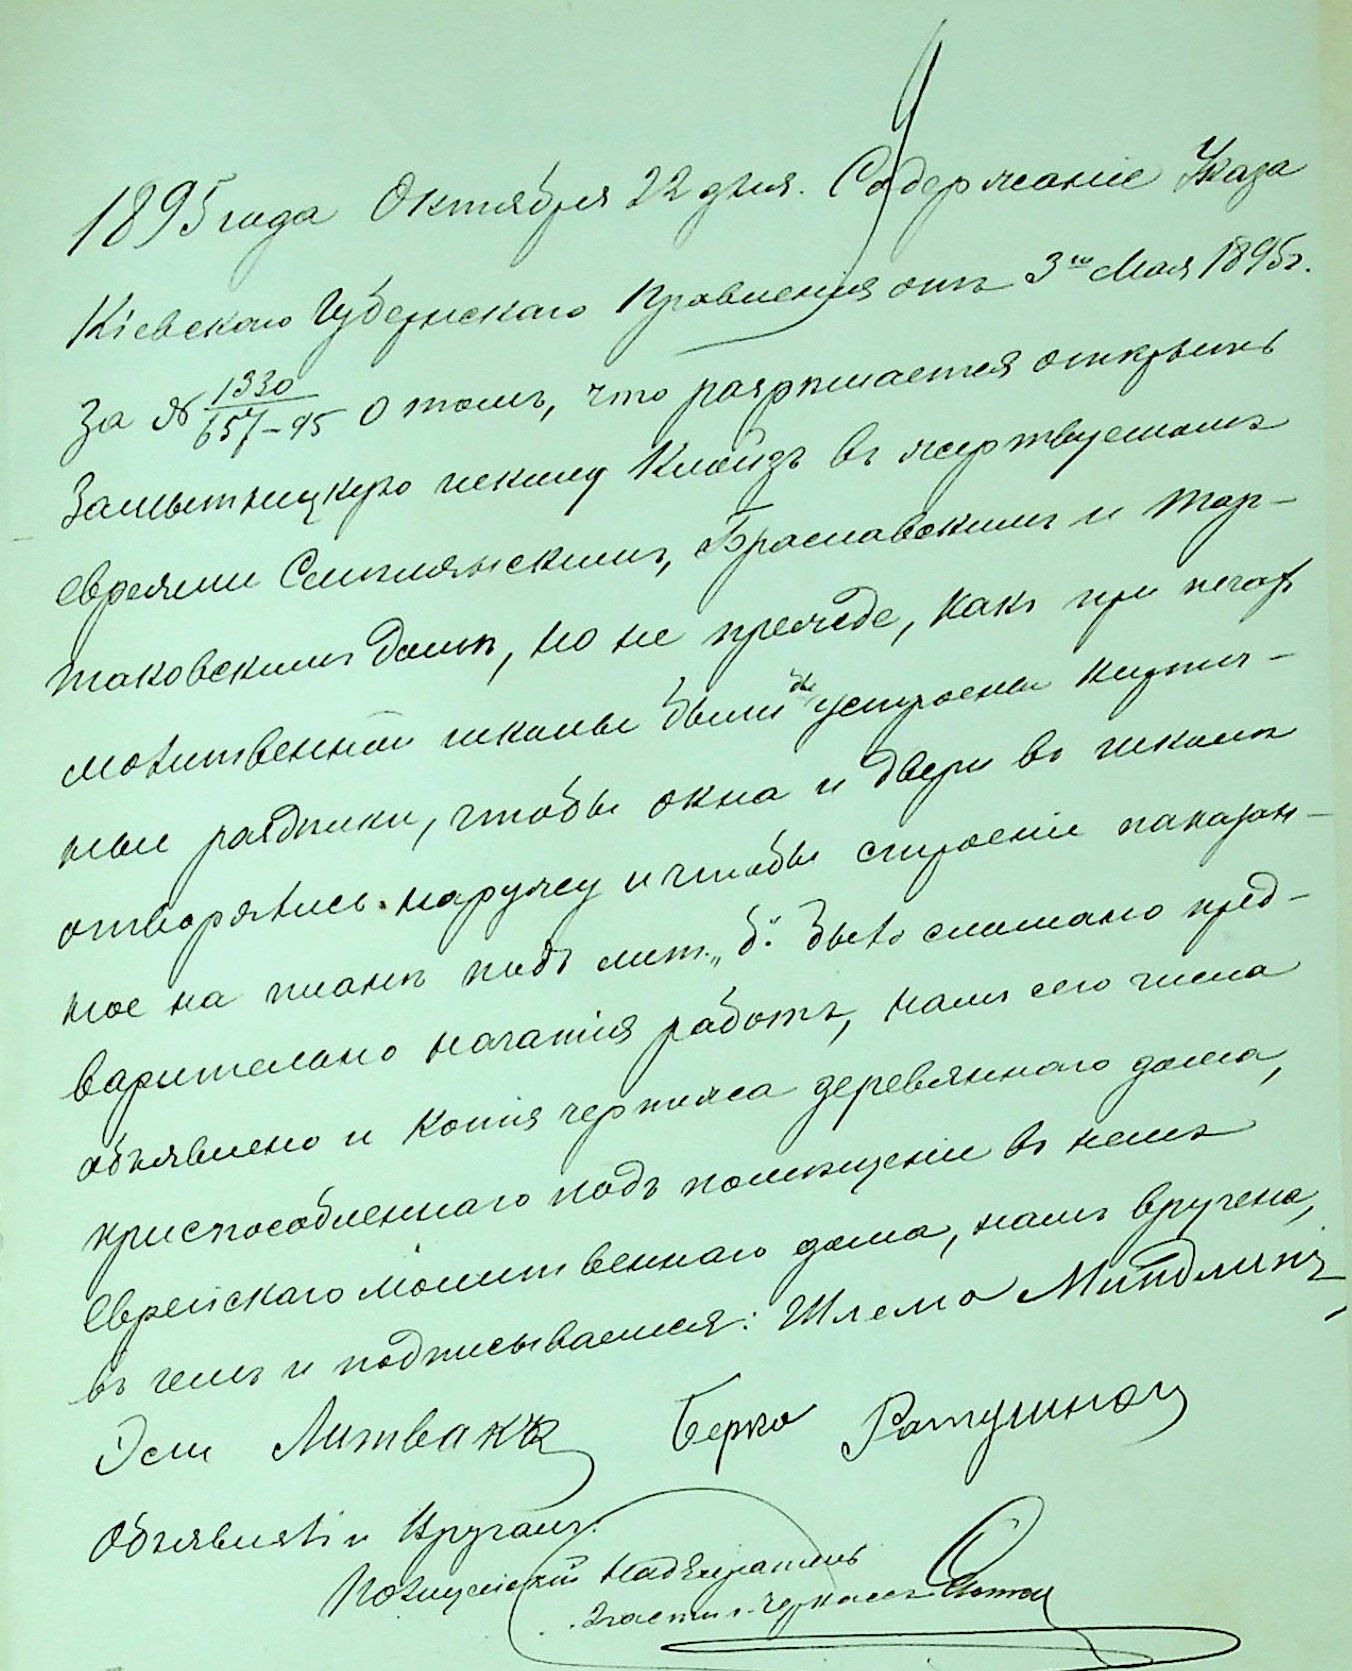 1895 года Октября 22 дня. Содержаніе Указа
Кіевскаго Губернскаго Правленія отъ 3го Мая 1895 г.
За № 1330/657-95 о томъ, что разрѣшается открыть
школу Клойзъ въ жертвуемомъ
евреями Смилянскимъ, Браславскимъ и Тар-
таковскимъ домѣ, но не прежде, какъ при печахъ
молитвенной школы были бы устроены кирпич-
ные раздѣлки, чтобы окна и двери въ школѣ
отворялись наружу и чтобы строеніе показан-
ное на планѣ подъ лит. „б" было сломано пред-
варительно начатія работъ, намъ сего числа
объявлено и копія чертежа деревяннаго дома,
приспособленнаго подъ помѣщеніе въ немъ
Еврейскаго молитвеннаго дома, намъ вручена,
въ чемъ и подписываемся: Шлемо Миндлинъ,
Эсли Литвакъ Берко Ратушной
Объявлялъ и вручалъ:
Полицейскій Надзиратель
2 части г. Черкассъ